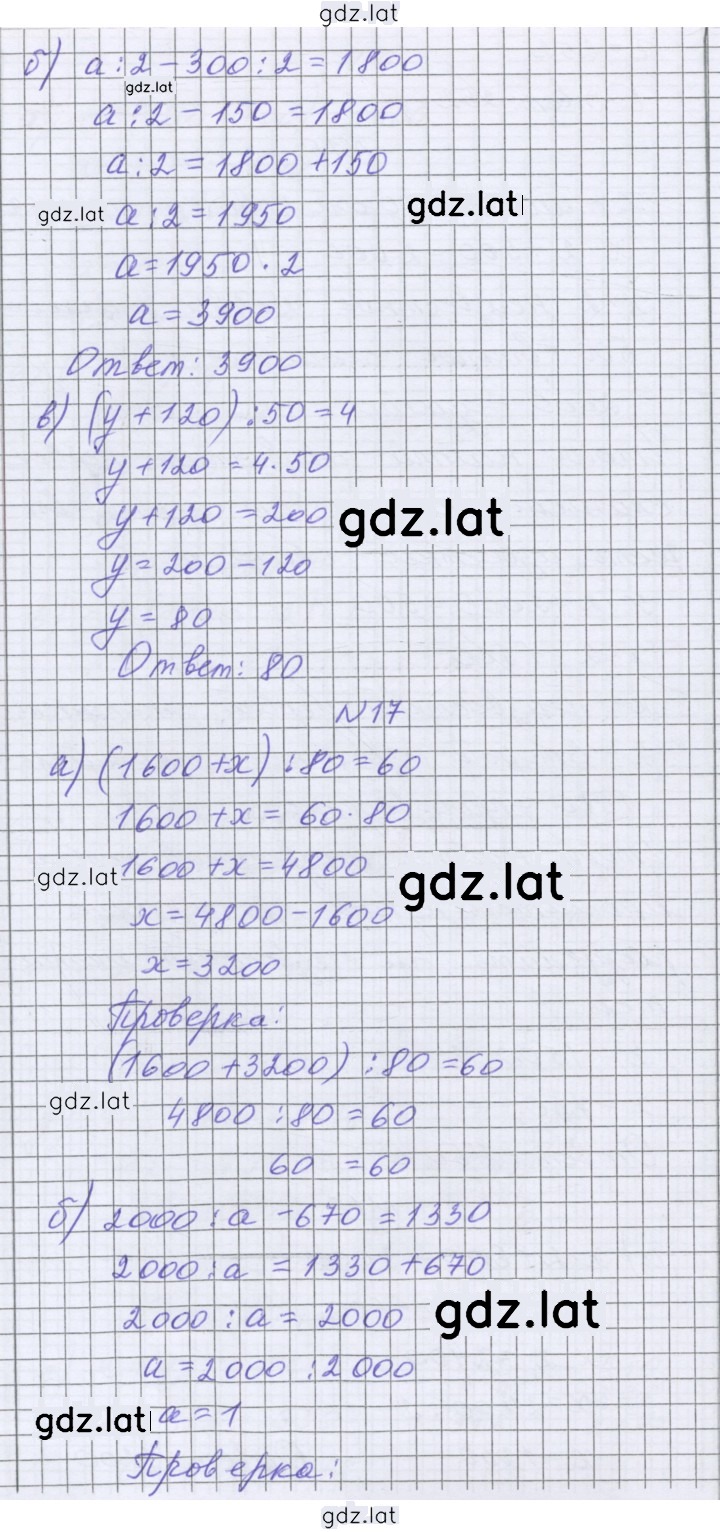 gdz.lat
б) a : 2 - 300 : 2 = 1800
gdz.lat
a : 2 - 150 = 1800
a : 2 = 1800 + 150
gdz.lat a : 2 = 1950 gdz.lat
a = 1950 · 2
a = 3900
Ответ: 3900
в) (y + 120) : 50 = 4
y + 120 = 4 · 50
y + 120 = 200 gdz.lat
y = 200 - 120
y = 80
Ответ: 80
N17
а) (1600 + x) : 80 = 60
1600 + x = 60 · 80
gdz.lat 1600 + x = 4800 gdz.lat
x = 4800 - 1600
x = 3200
Проверка:
(1600 + 3200) : 80 = 60
gdz.lat 4800 : 80 = 60
60 = 60
б) 2000 : a - 670 = 1330
2000 : a = 1330 + 670
2000 : a = 2000 gdz.lat
a = 2000 : 2000
gdz.lat a = 1
Проверка:
gdz.lat